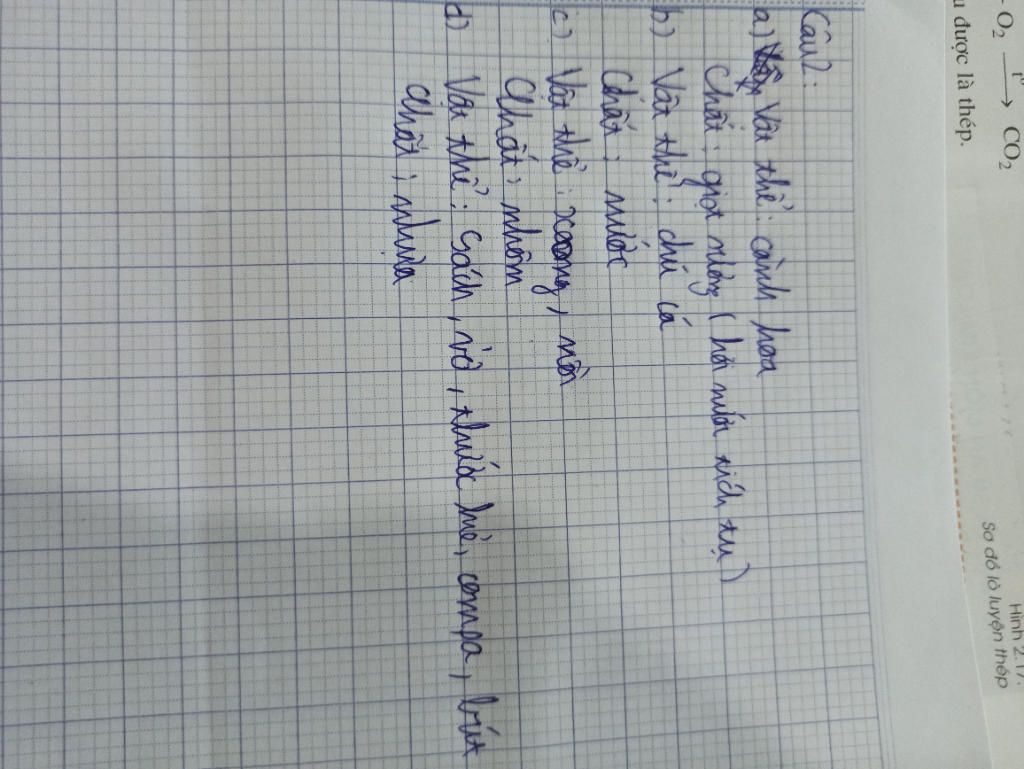 - O₂ —t°→ CO₂
u được là thép.
Hình 2.17.
Sơ đồ lò luyện thép
Câu 2:
a) Vật thể: cành hoa
Chất: giọt sương (hơi nước tích tụ)
b) Vật thể: chú cá
Chất: nước
c) Vật thể: xoong, nồi
Chất: nhôm
d) Vật thể: sách, vở, thước kẻ, compa, bút
Chất: nhựa